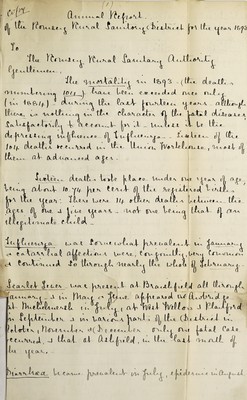 Copy
Annual Report
of the Romsey Rural Sanitary District for the year 1893
To
The Romsey Rural Sanitary Authority
Gentlemen
The mortality in 1893 (the deaths
numbering 104) have been exceeded once only
(in 1884) during the last fourteen years although
there is nothing in the character of the fatal diseases
satisfactorily to account for it unless it be the
depressing influence of Influenza. Sixteen of the
104 deaths occurred in the Union Workhouse, most of
them at advanced ages.
Sixteen deaths took place under one year of age,
being about 10.74 per cent of the registered births
for the year. There were 14 other deaths between the
ages of one & five years - not one being that of an
illegitimate child.
Influenza was somewhat prevalent in January
& catarrhal affections were, consequently, very common
& continued so through nearly the whole of February.
Scarlet Fever was present at Braishfield all through
January, & in May & June appeared in Awbridge
at Michelmersh in July, at West Wellow & Plaitford
in September & in various parts of the District in
October, November & December only one fatal case
occurred, & that at Ashfield, in the last month of
the year.
Diarrhoea became prevalent in July, epidemic in August